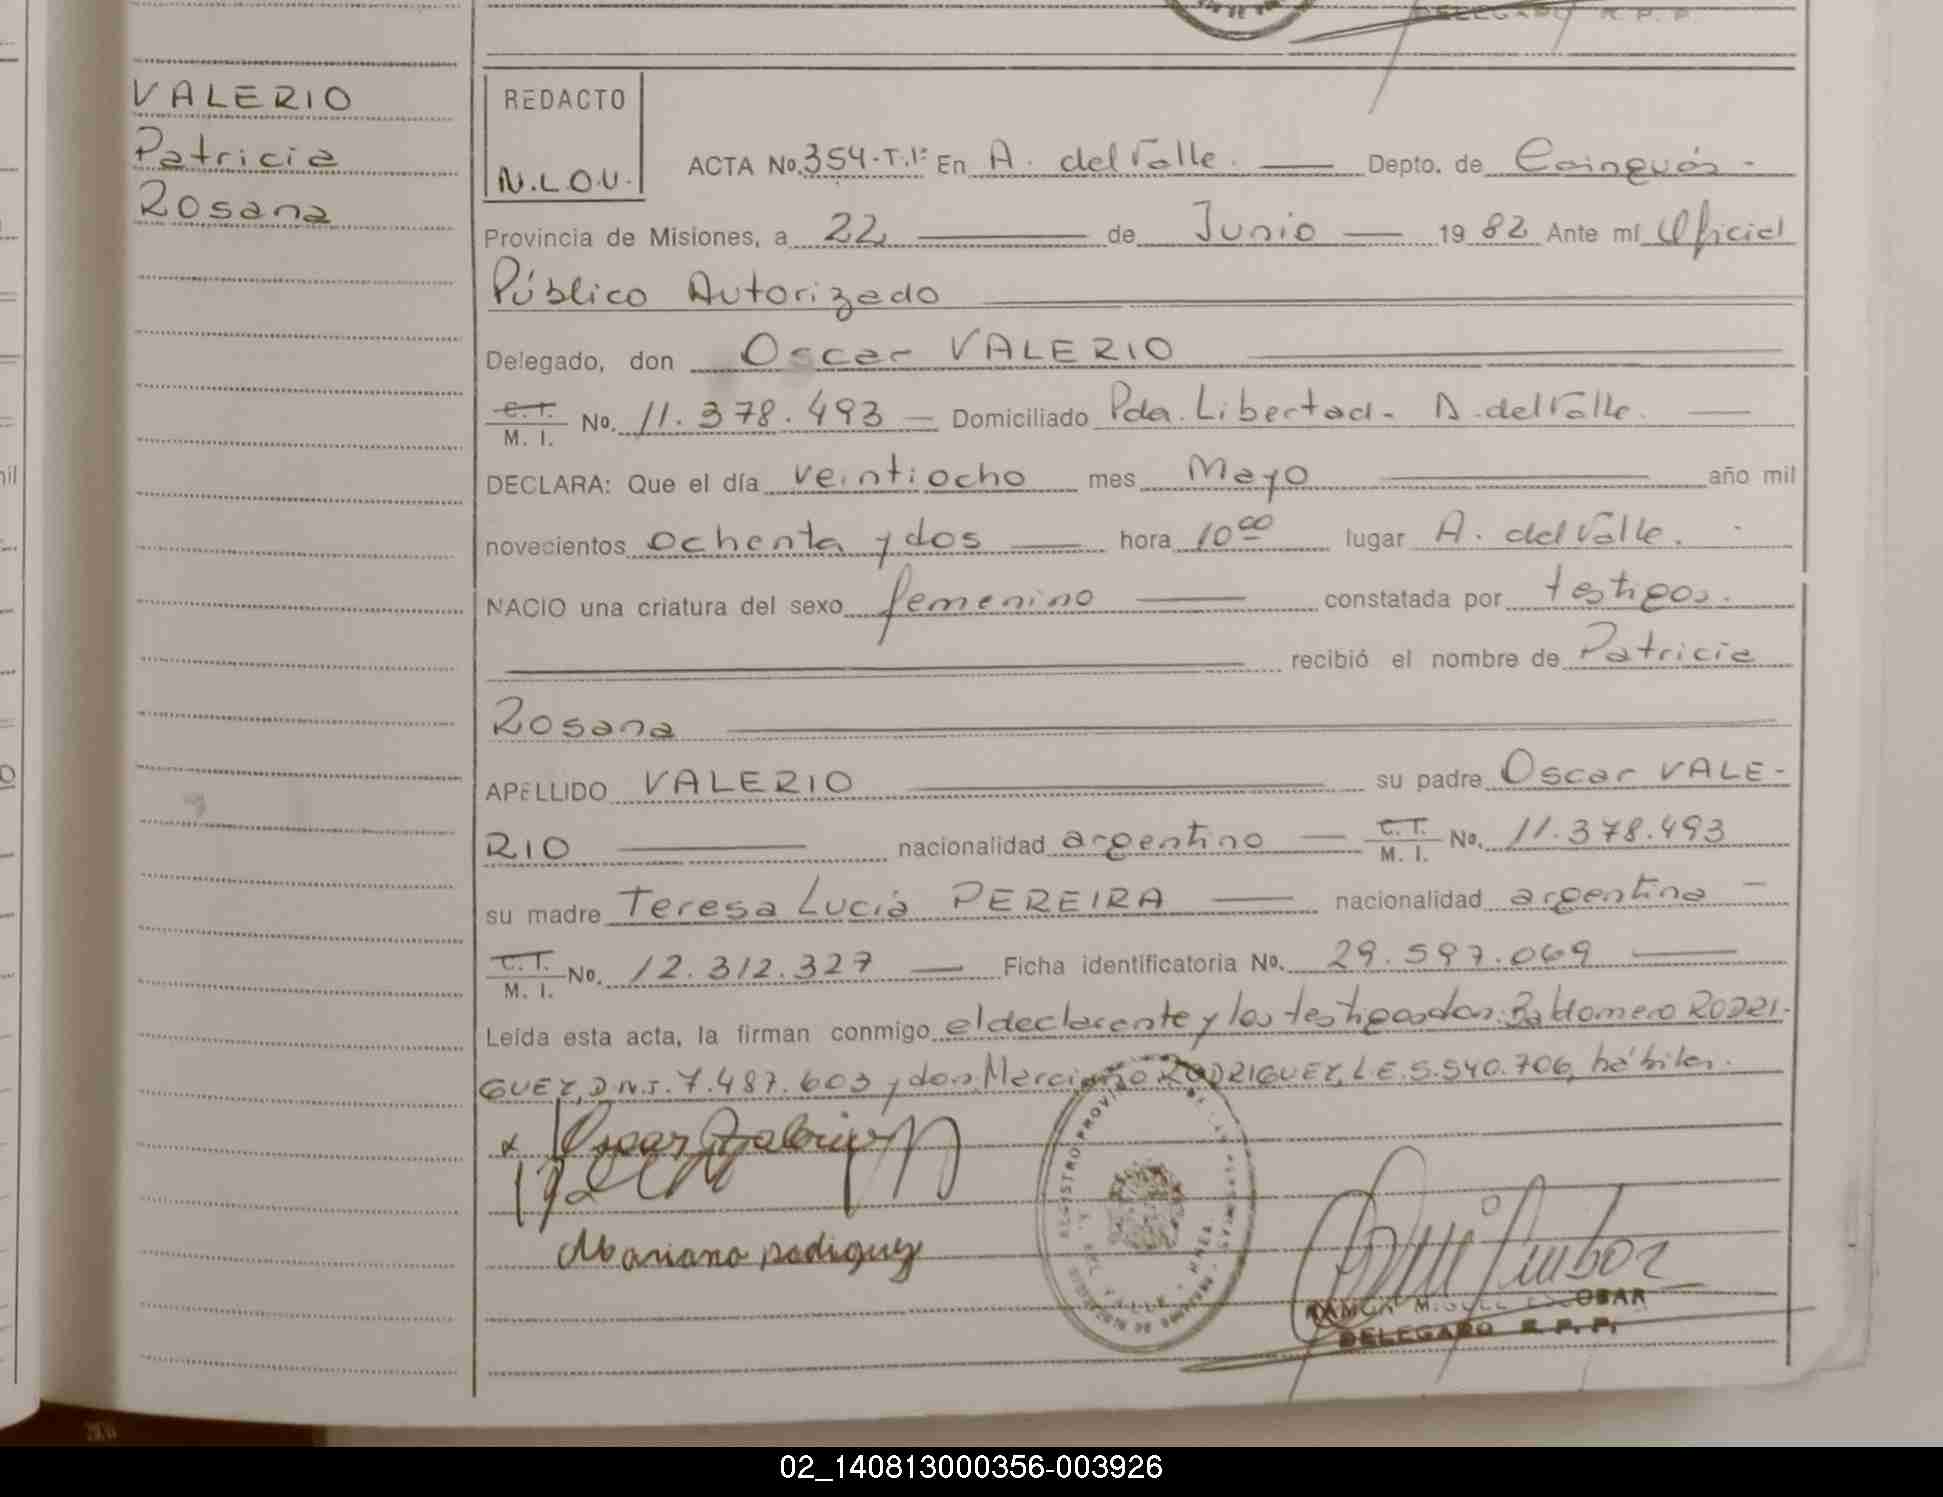 DELEGADO R. P. P.
VALERIO
Patricia
Rosana
REDACTO
N.L.O.U.
ACTA No. 354-T.1º En A. del Valle. Depto. de Cainguás.
Provincia de Misiones, a 22 de Junio 1982 Ante mí Oficial
Público Autorizado
Delegado, don Oscar VALERIO
C.I. M. I. No. 11.378.493 Domiciliado Pda. Libertad - A. del Valle.
DECLARA: Que el día veintiocho mes Mayo año mil
novecientos ochenta y dos hora 10 00 lugar A. del Valle.
NACIO una criatura del sexo femenino constatada por testigos.
recibió el nombre de Patricia
Rosana
APELLIDO VALERIO su padre Oscar VALE-
RIO nacionalidad argentino C.I. M. I. No. 11.378.493
su madre Teresa Lucía PEREIRA nacionalidad argentina
C.I. M. I. No. 12.312.327 Ficha identificatoria No. 29.597.069
Leída esta acta, la firman conmigo el declarante y los testigos don Baldomero RODRI-
GUEZ, D.N.I. 7.487.603 y don Marciano RODRIGUEZ, L.E. 5.540.706, hábiles.
Oscar Valerio
Mariano rodiguez
REGISTRO PROVINCIAL
RAMON MIGUEL ESCOBAR
DELEGADO R. P. P.
02_140813000356-003926